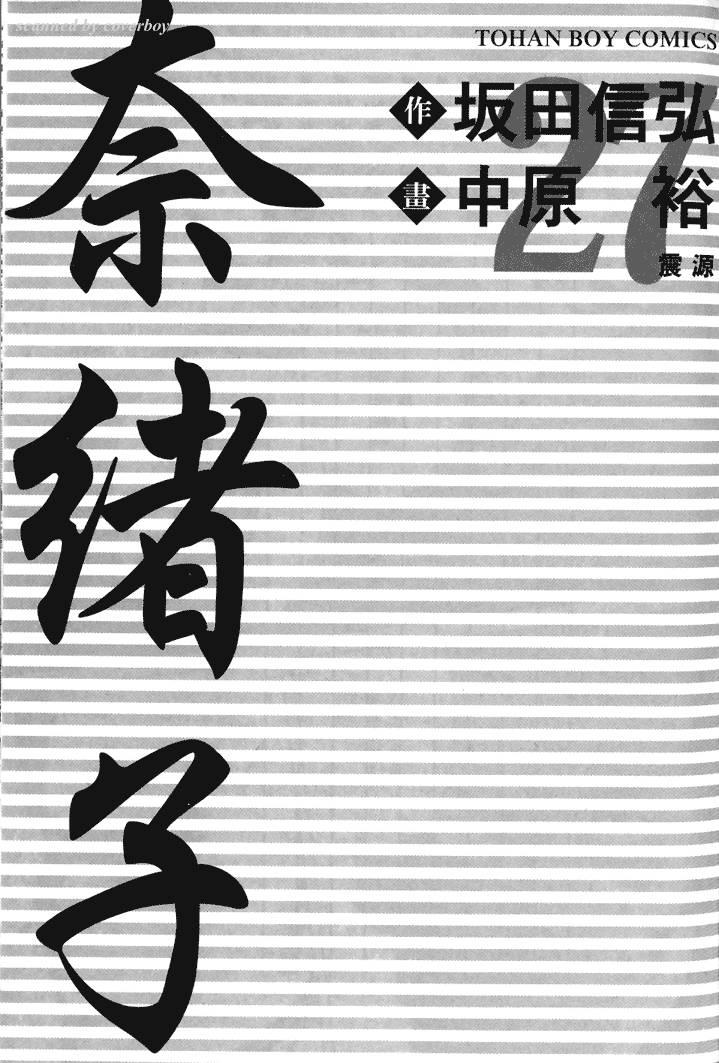 scanned by coverboy
TOHAN BOY COMICS
27
作 坂田信弘
畫 中原 裕
震源
奈緒子